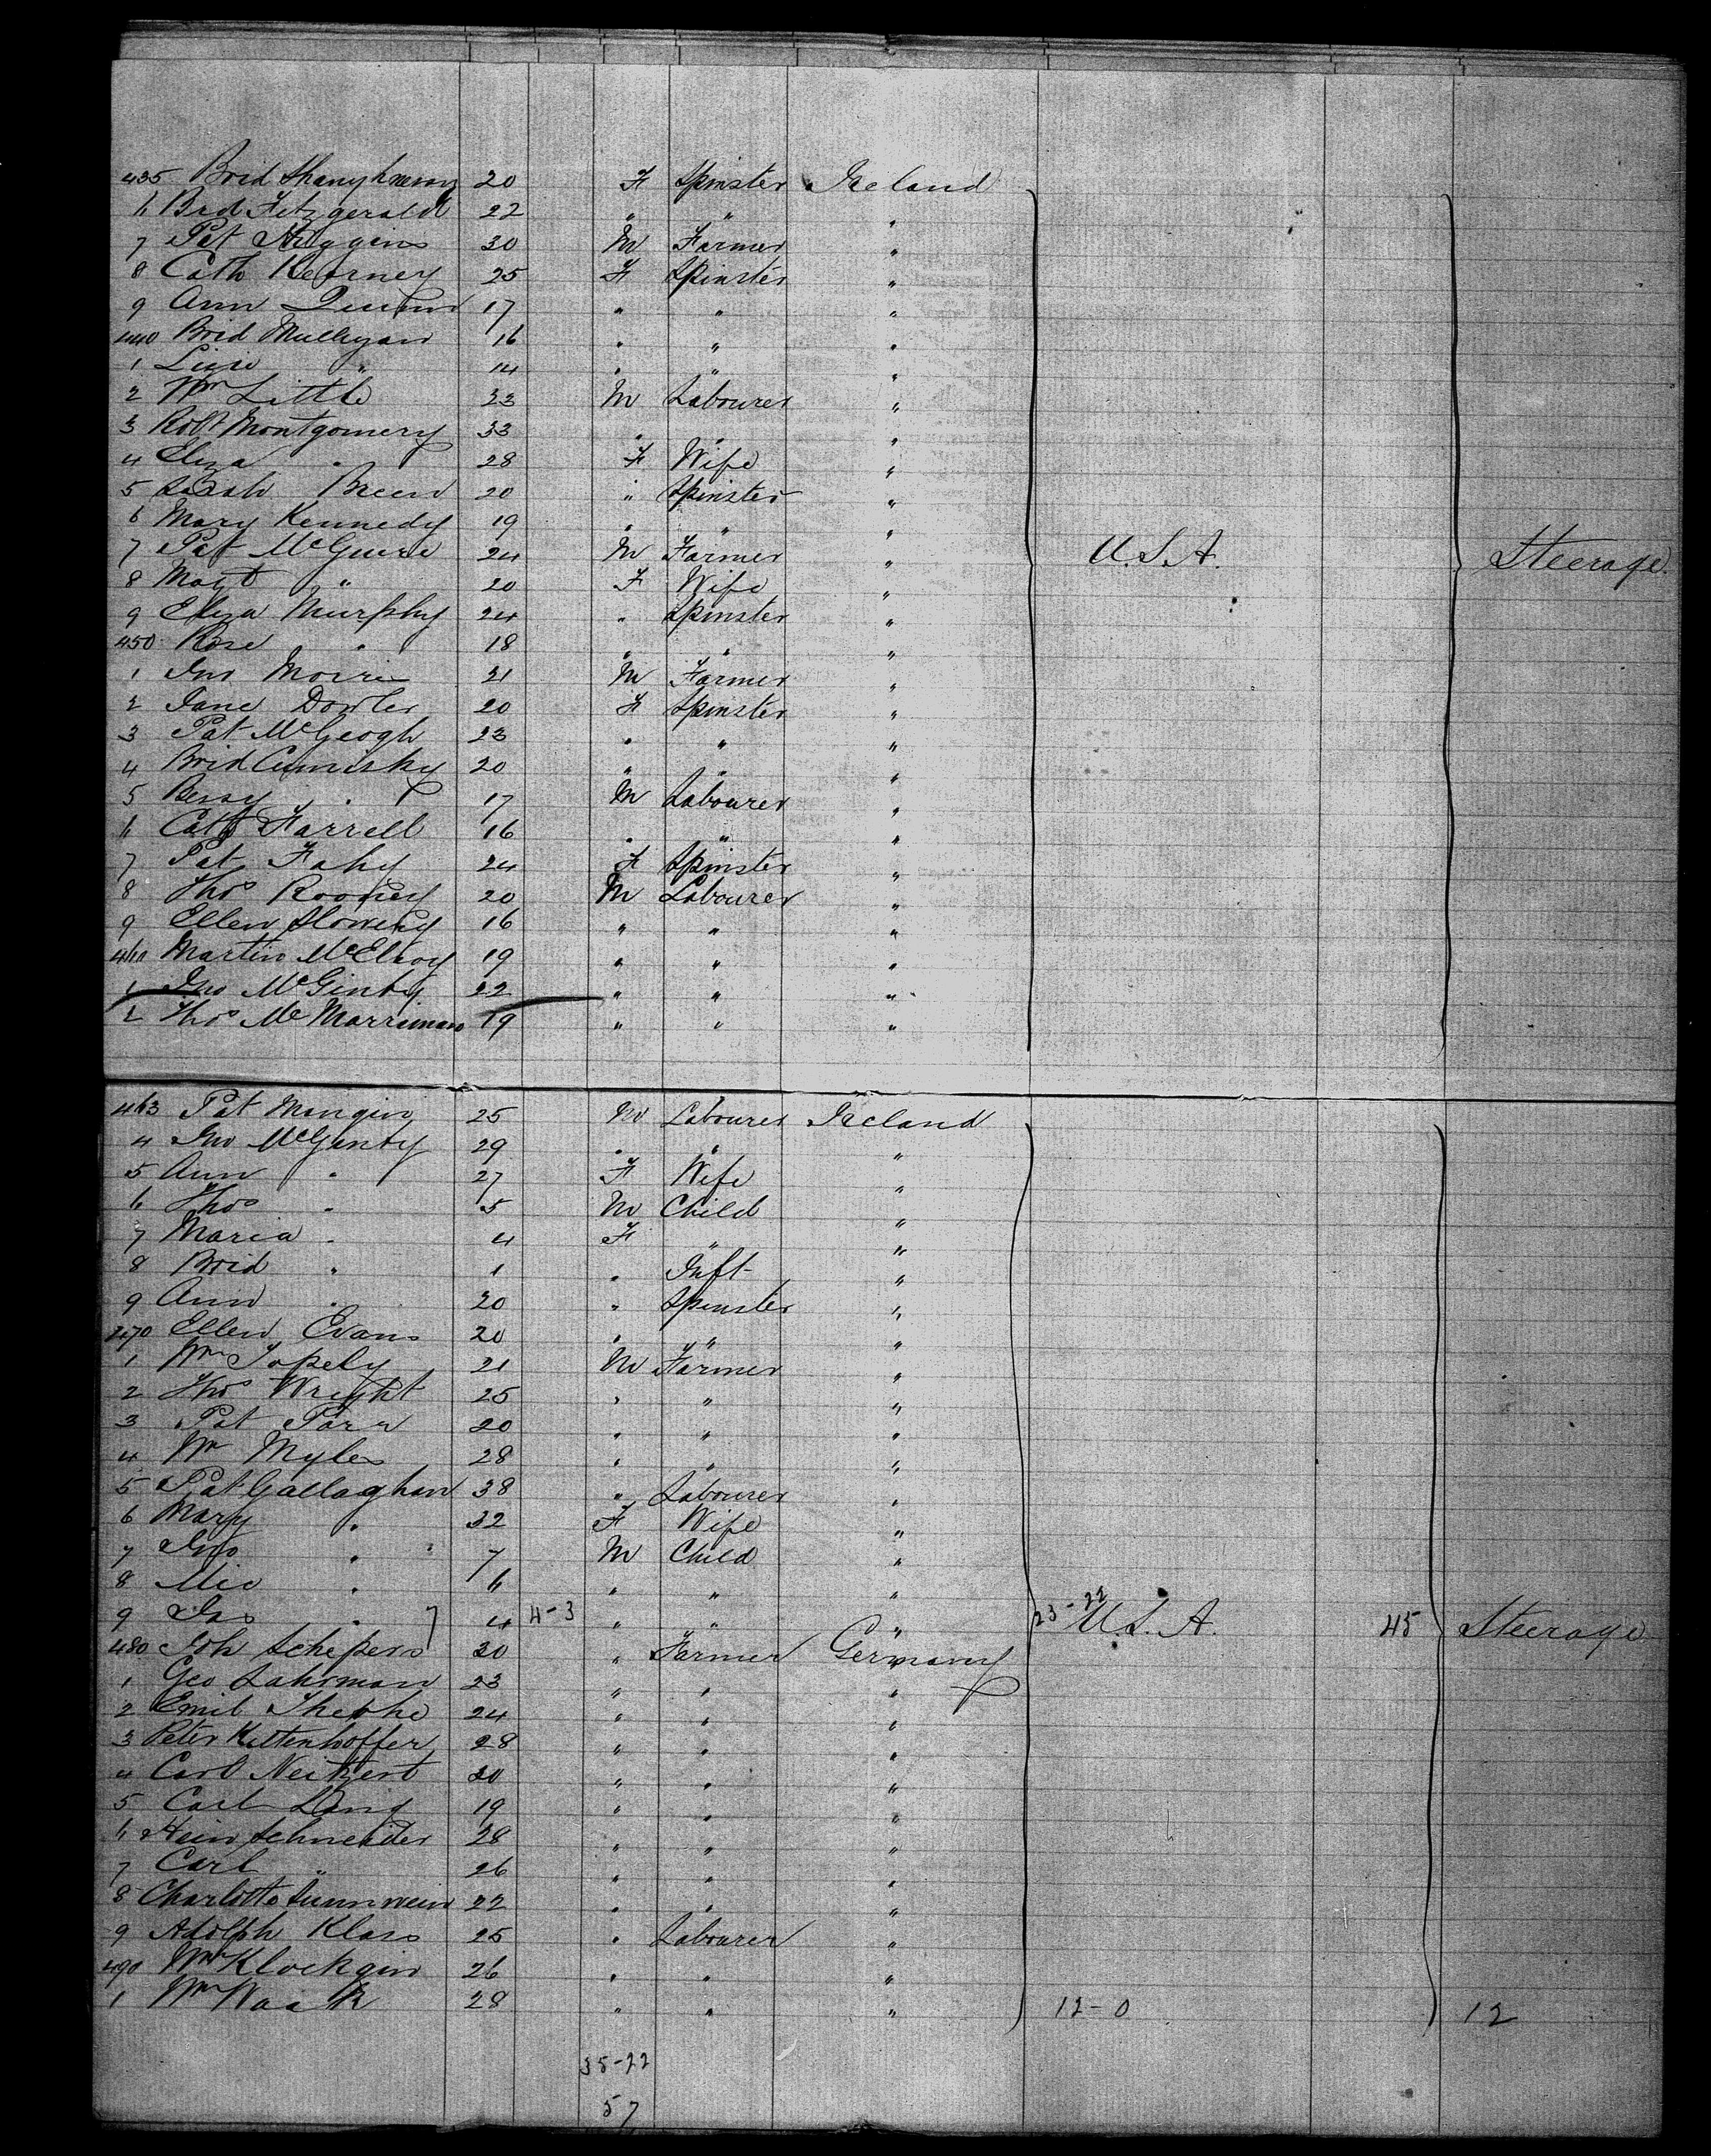 435 Brid Shanghnessy 20 F Spinster Ireland
6 Brd Fitzgerald 22 " " "
7 Pat Higgins 30 M Farmer "
8 Cath Kearney 25 F Spinster "
9 Ann Quinn 17 " " "
440 Brid Mulligan 16 " " "
1 Lizzie " 14 " " "
2 Wm Little 23 M Labourer "
3 Robt Montgomery 33 " " "
4 Eliza " 28 F Wife "
5 Sarah Breen 20 " Spinster "
6 Mary Kennedy 19 " " "
7 Pat McGuire 24 M Farmer " U.S.A. Steerage
8 Magt " 20 F Wife "
9 Eliza Murphy 24 " Spinster "
450 Rose " 18 " " "
1 Jno Morris 21 M Farmer "
2 Jane Dowler 20 F Spinster "
3 Pat McGeogh 23 " " "
4 Brid Cumisky 20 " " "
5 Bessy " 17 M Labourer "
6 Cath Farrell 16 " " "
7 Pat Fahy 24 F Spinster "
8 Thos Rooney 20 M Labourer "
9 Ellen Slowey 16 " " "
460 Martin McElroy 19 " " "
1 Jno McGinty 22 " " "
2 Thos Mc Marriman 19 " " "
463 Pat Mangin 25 M Labourer Ireland
4 Jno McGanty 29 " " "
5 Ann " 27 F Wife "
6 Thos " 5 M Child "
7 Maria " 4 F " "
8 Brid " 1 " Inft "
9 Ann " 20 " Spinster "
470 Ellen Evans 20 " " "
1 Wm Topely 21 M Farmer "
2 Thos Wright 25 " " "
3 Pat Parr 20 " " "
4 Wm Myles 28 " " "
5 Pat Gallaghan 38 " Labourer "
6 Mary " 32 F Wife "
7 Jno " 7 M Child "
8 Mic " 6 " " "
9 Jas " 4 4-3 " " " 23-22 U.S.A. 45 Steerage
480 Joh Schepers 30 " Farmer Germany
1 Geo Lahrman 23 " " "
2 Emil 24 " " "
3 Peter Kettenhoffer 28 " " "
4 Carl Neitzert 30 " " "
5 Carl 19 " " "
6 Hein Schneider 28 " " "
7 Carl " 26 " " "
8 Charlotte Sunnwein 22 " " "
9 Adolph Klass 25 " Labourer "
490 Wm Klockgin 26 " " "
1 Wm Waak 28 " " " 12-0 12
35-22
57